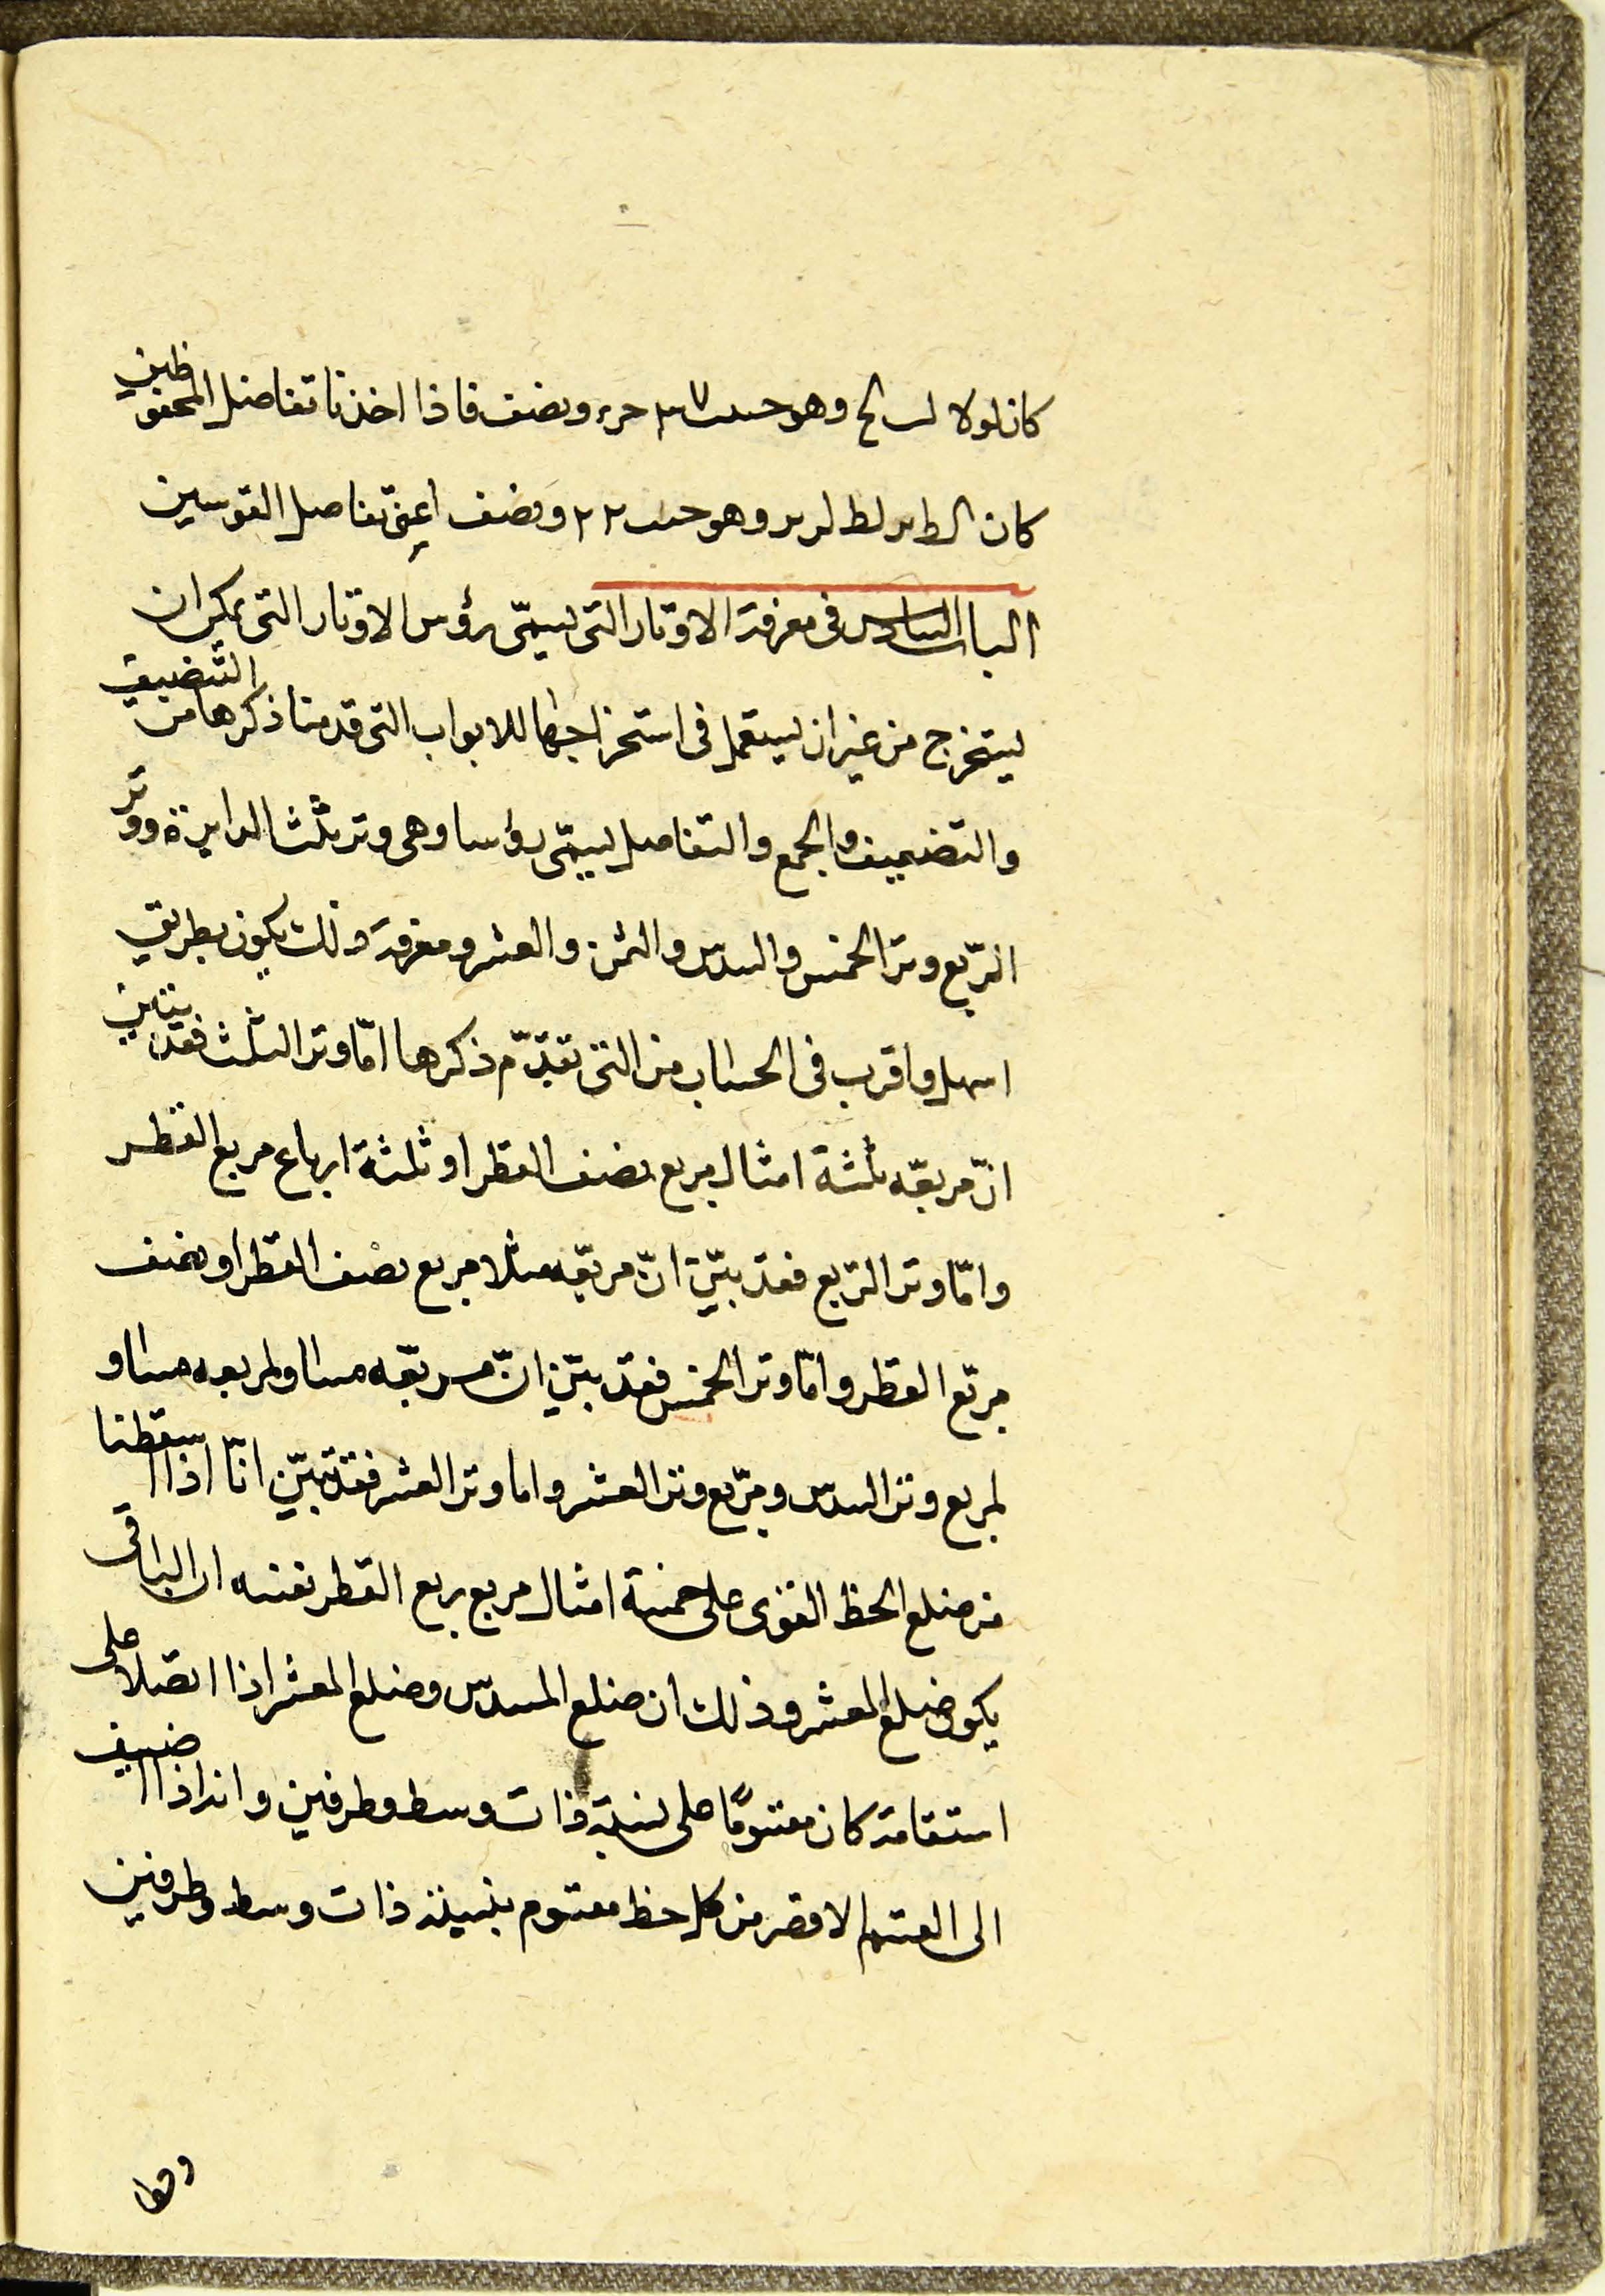 كان لولا لب لح وهو حىىب ٣٧ حرء ونصف فاذا اخذنا تفاضل المحفوظين
كان الط ىد لط لو ىد وهو حىىب ٢٢ ونصف اعنى تفاضل القوسين
الباب السادس فى معرفة الاوتار التى يسمّى رؤس الاوتار التى يمكن ان
يستخرج من غير ان يستعمل فى استخراجها للابواب التى قدمنا ذكرها من التنصيف
والتضعيف والجمع والتفاضل يسمّى رؤسا وهى وتر ثلث الدايرة ووتر
الرّبع وتر الخمس والسدس والثمن والعشر ومعرفة ذلك يكون بطريق
اسهل واقرب فى الحساب من التى تقدّم ذكرها امّا وتر الثلث فقد يتبين
انّ مربعّه ثلثة امثال مربع نصف القطر او ثلثة ارباع مربع القطر
وامّا وتر الرّبع فقد بيّن انّ مربعّه مثلا مربع نصف القطر او نصف
مربّع القطر وامّا وتر الخمس فقد بيّن انّ مربعّه مساو لمربعه مساو
لمربع وتر السدس ومربّع وتر العشر واما وتر العشر فقد تبيّن انّا اذا اسقطنا
من ضلع الخط القوى على خمسة امثال مربع ربع القطر نفسه ان الباقى
يكون ضلع المعشر وذلك ان ضلع المسدس وضلع المعشر اذا اتصلا على
استقامة كان مقسومًا على نسبة ذات وسط وطرفين وانه اذا اضيف
الى القسم الاقصر من كل خط مقسوم بنسبة ذات وسط وطرفين